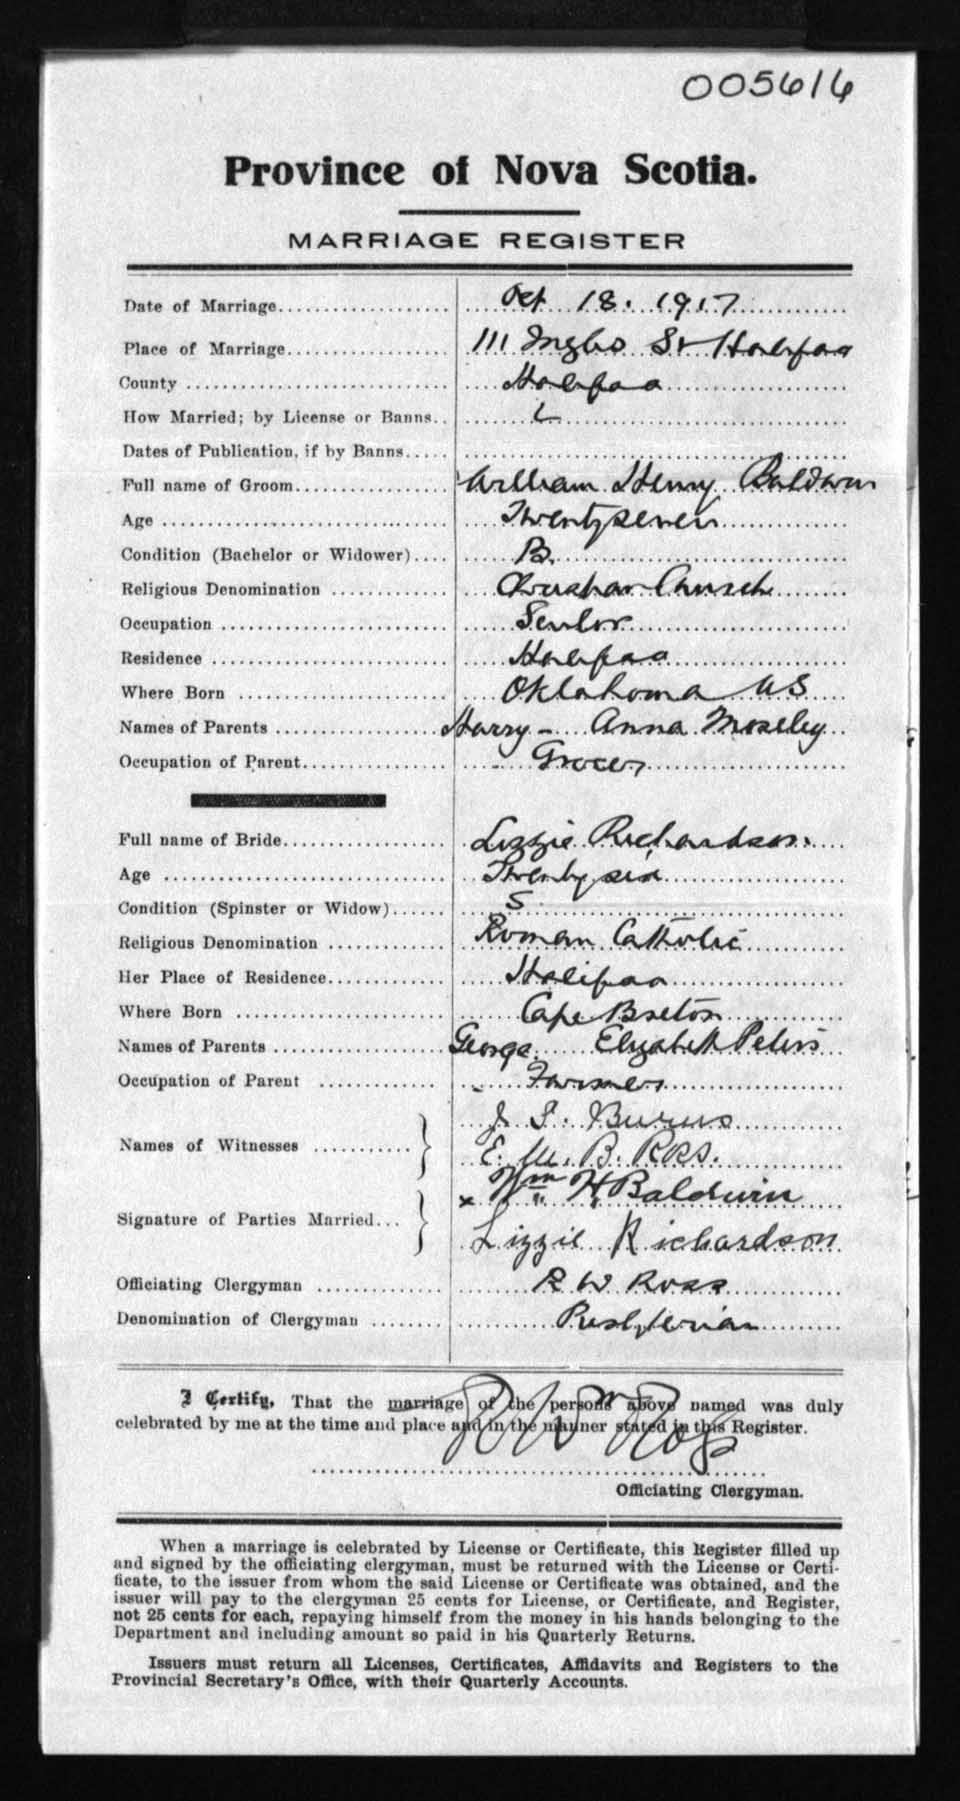 005616
Province of Nova Scotia.
MARRIAGE REGISTER
Date of Marriage Oct 18. 1917
Place of Marriage 111 St Halifax
County Halifax
How Married; by License or Banns L
Dates of Publication, if by Banns
Full name of Groom William Henry Baldwin
Age Twentyseven
Condition (Bachelor or Widower) B.
Religious Denomination Christian Church
Occupation
Residence Halifax
Where Born Oklahoma US
Names of Parents Harry - Anna Moseley
Occupation of Parent - Grocer
Full name of Bride Lizzie Richardson.
Age Twentysix
Condition (Spinster or Widow) S
Religious Denomination Roman Catholic
Her Place of Residence Halifax
Where Born Cape Breton
Names of Parents George Elizabeth Peters
Occupation of Parent - Farmer
Names of Witnesses J. Burns
E. M. B. Ross.
Signature of Parties Married x Wm H Baldwin
Lizzie Richardson
Officiating Clergyman R W Ross
Denomination of Clergyman Presbyterian
I Certify, That the marriage of the persons above named was duly
celebrated by me at the time and place and in the manner stated in this Register.
R W Ross
Officiating Clergyman.
When a marriage is celebrated by License or Certificate, this Register filled up
and signed by the officiating clergyman, must be returned with the License or Certi-
ficate, to the issuer from whom the said License or Certificate was obtained, and the
issuer will pay to the clergyman 25 cents for License, or Certificate, and Register,
not 25 cents for each, repaying himself from the money in his hands belonging to the
Department and including amount so paid in his Quarterly Returns.
Issuers must return all Licenses, Certificates, Affidavits and Registers to the
Provincial Secretary's Office, with their Quarterly Accounts.